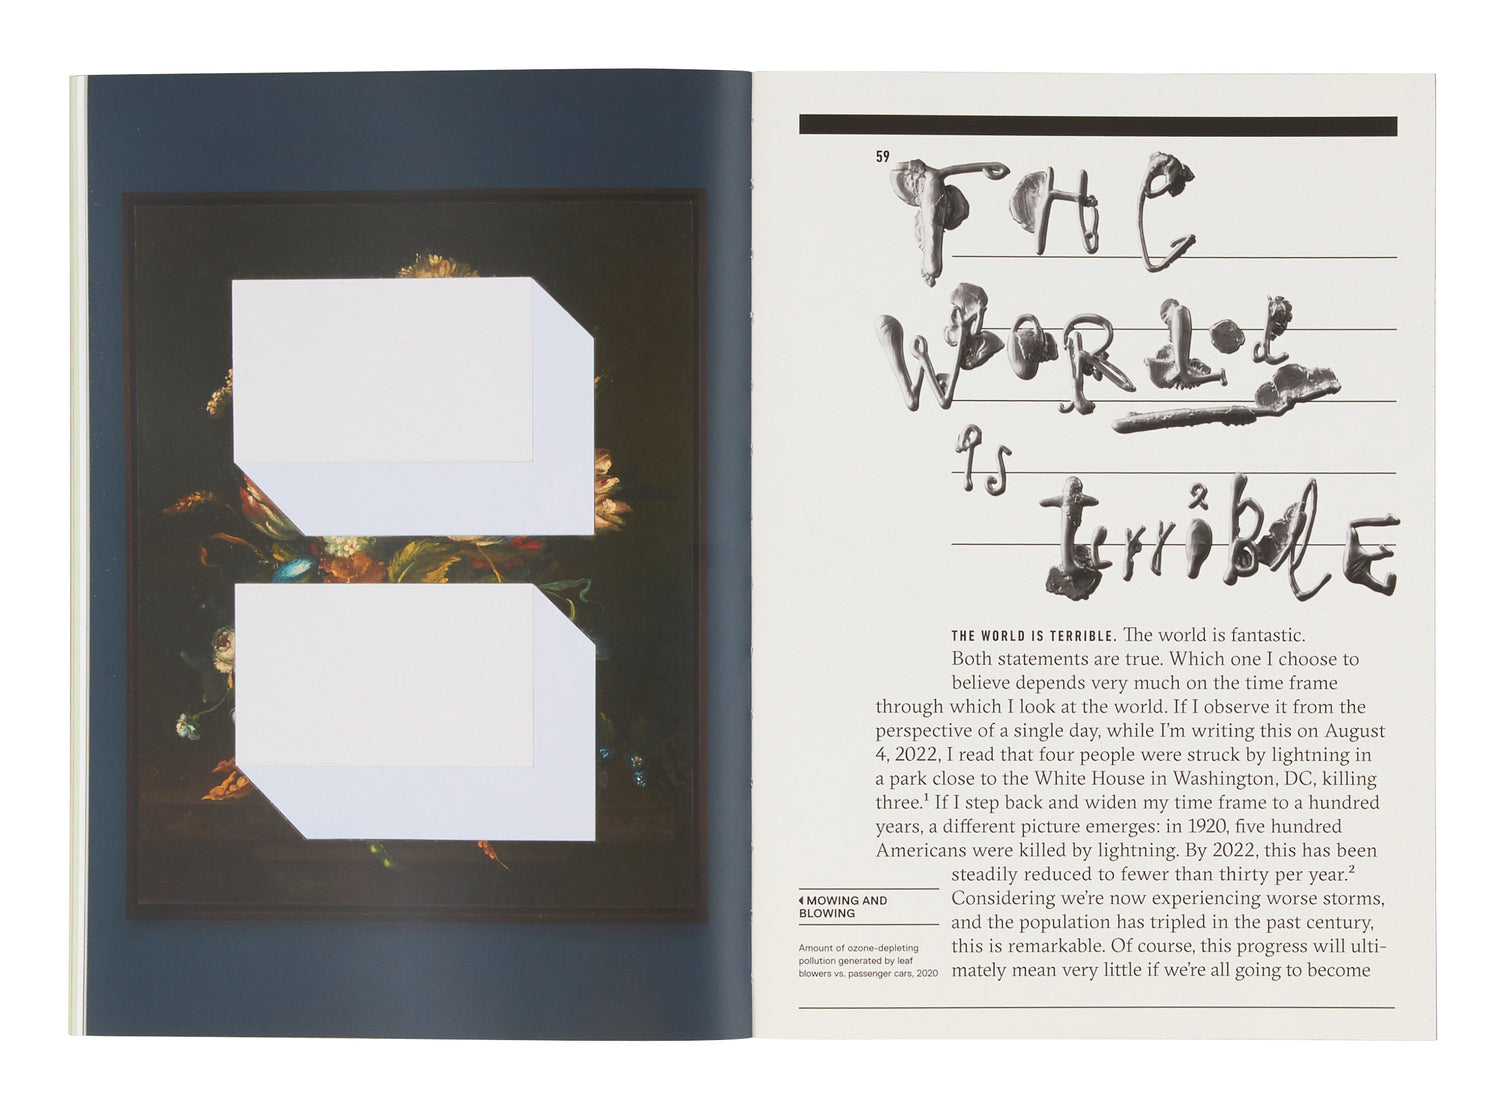 59
THE
WORLd
is
terriBlE
THE WORLD IS TERRIBLE. The world is fantastic.
Both statements are true. Which one I choose to
believe depends very much on the time frame
through which I look at the world. If I observe it from the
perspective of a single day, while I’m writing this on August
4, 2022, I read that four people were struck by lightning in
a park close to the White House in Washington, DC, killing
three.¹ If I step back and widen my time frame to a hundred
years, a different picture emerges: in 1920, five hundred
Americans were killed by lightning. By 2022, this has been
steadily reduced to fewer than thirty per year.²
Considering we’re now experiencing worse storms,
and the population has tripled in the past century,
this is remarkable. Of course, this progress will ulti-
mately mean very little if we’re all going to become
MOWING AND
BLOWING
Amount of ozone-depleting
pollution generated by leaf
blowers vs. passenger cars, 2020